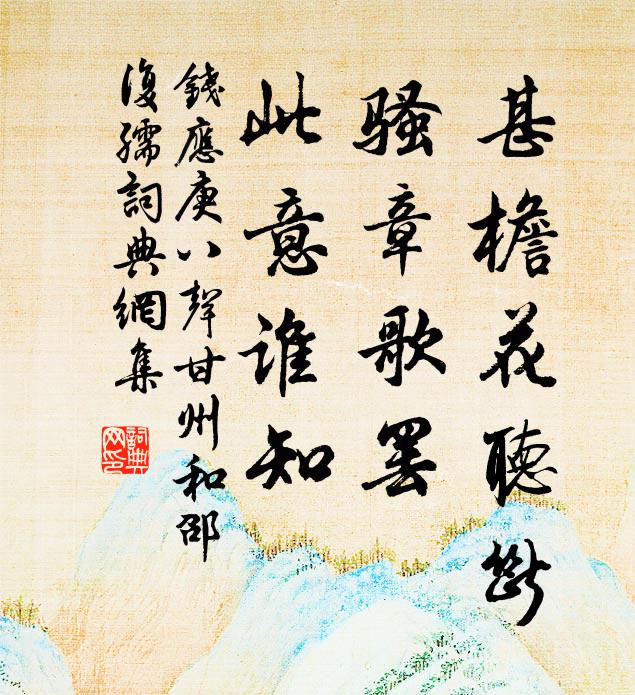 甚檐花聽斷
騷章歌罷
此意誰知
錢應庚八聲甘州和邵
復孺詞典網集
詞典
网印